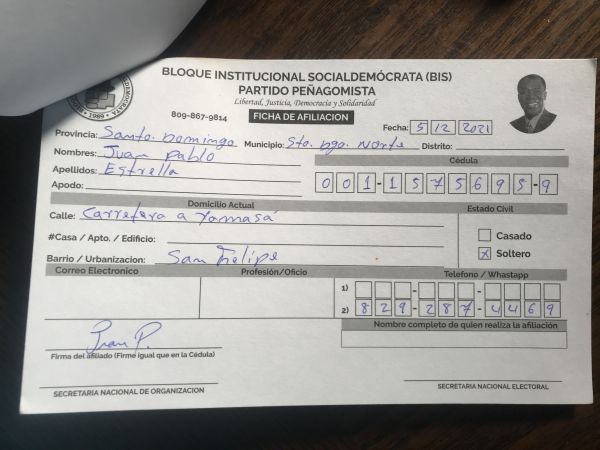 BLOQUE INSTITUCIONAL SOCIALDEMÓCRATA (BIS)
PARTIDO PEÑAGOMISTA
Libertad, Justicia, Democracia y Solidaridad
809-867-9814 FICHA DE AFILIACION
Fecha: 5 12 2021
Provincia: Santo. Domingo Municipio: Sto. Dgo. Norte Distrito:
Nombres: Juan Pablo Cédula
Apellidos: Estrella 001-1575695-9
Apodo:
Domicilio Actual Estado Civil
Calle: Carretera a Yamasá
Casado
#Casa / Apto. / Edificio:
X Soltero
Barrio / Urbanizacion: San Felipe
Correo Electronico Profesión/Oficio Telefono / Whastapp
1)
2) 829-287-4469
Nombre completo de quien realiza la afiliación
Juan P.
Firma del afiliado (Firme igual que en la Cédula)
SECRETARIA NACIONAL DE ORGANIZACION SECRETARIA NACIONAL ELECTORAL